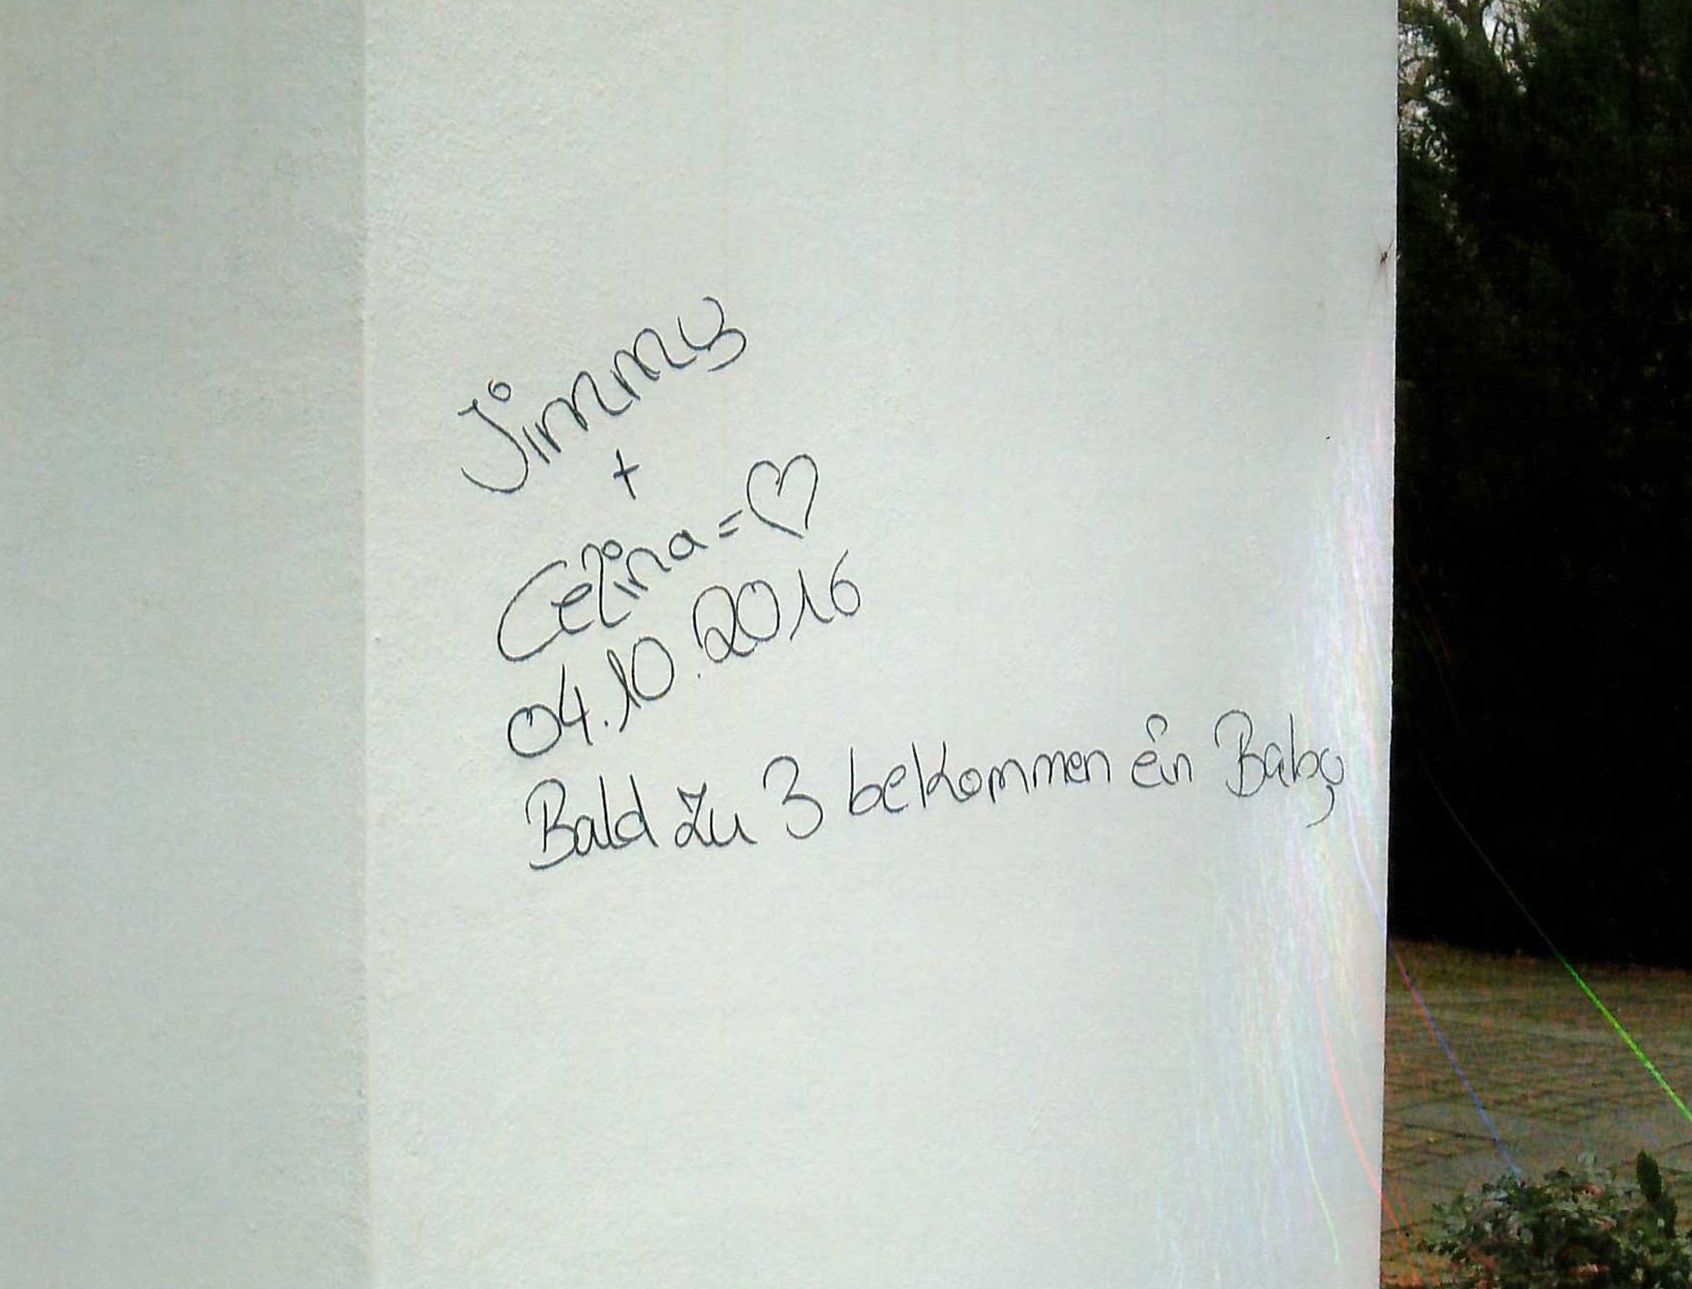 Jimmy
+
Celina = ♡
04.10.2016
Bald zu 3 bekommen ein Baby